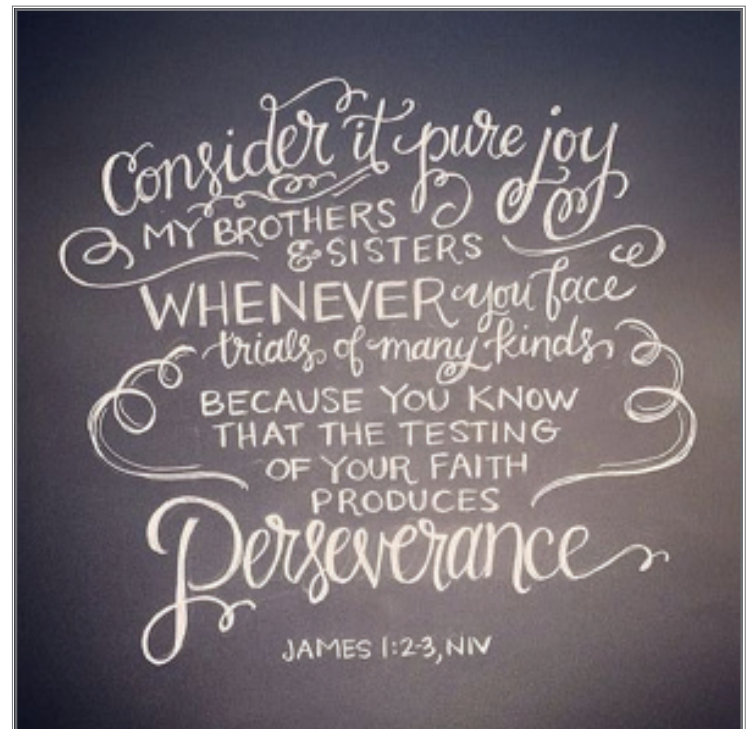 Consider it pure joy
MY BROTHERS
& SISTERS
WHENEVER you face
trials of many kinds
BECAUSE YOU KNOW
THAT THE TESTING
OF YOUR FAITH
PRODUCES
Perseverance
JAMES 1:2-3, NIV